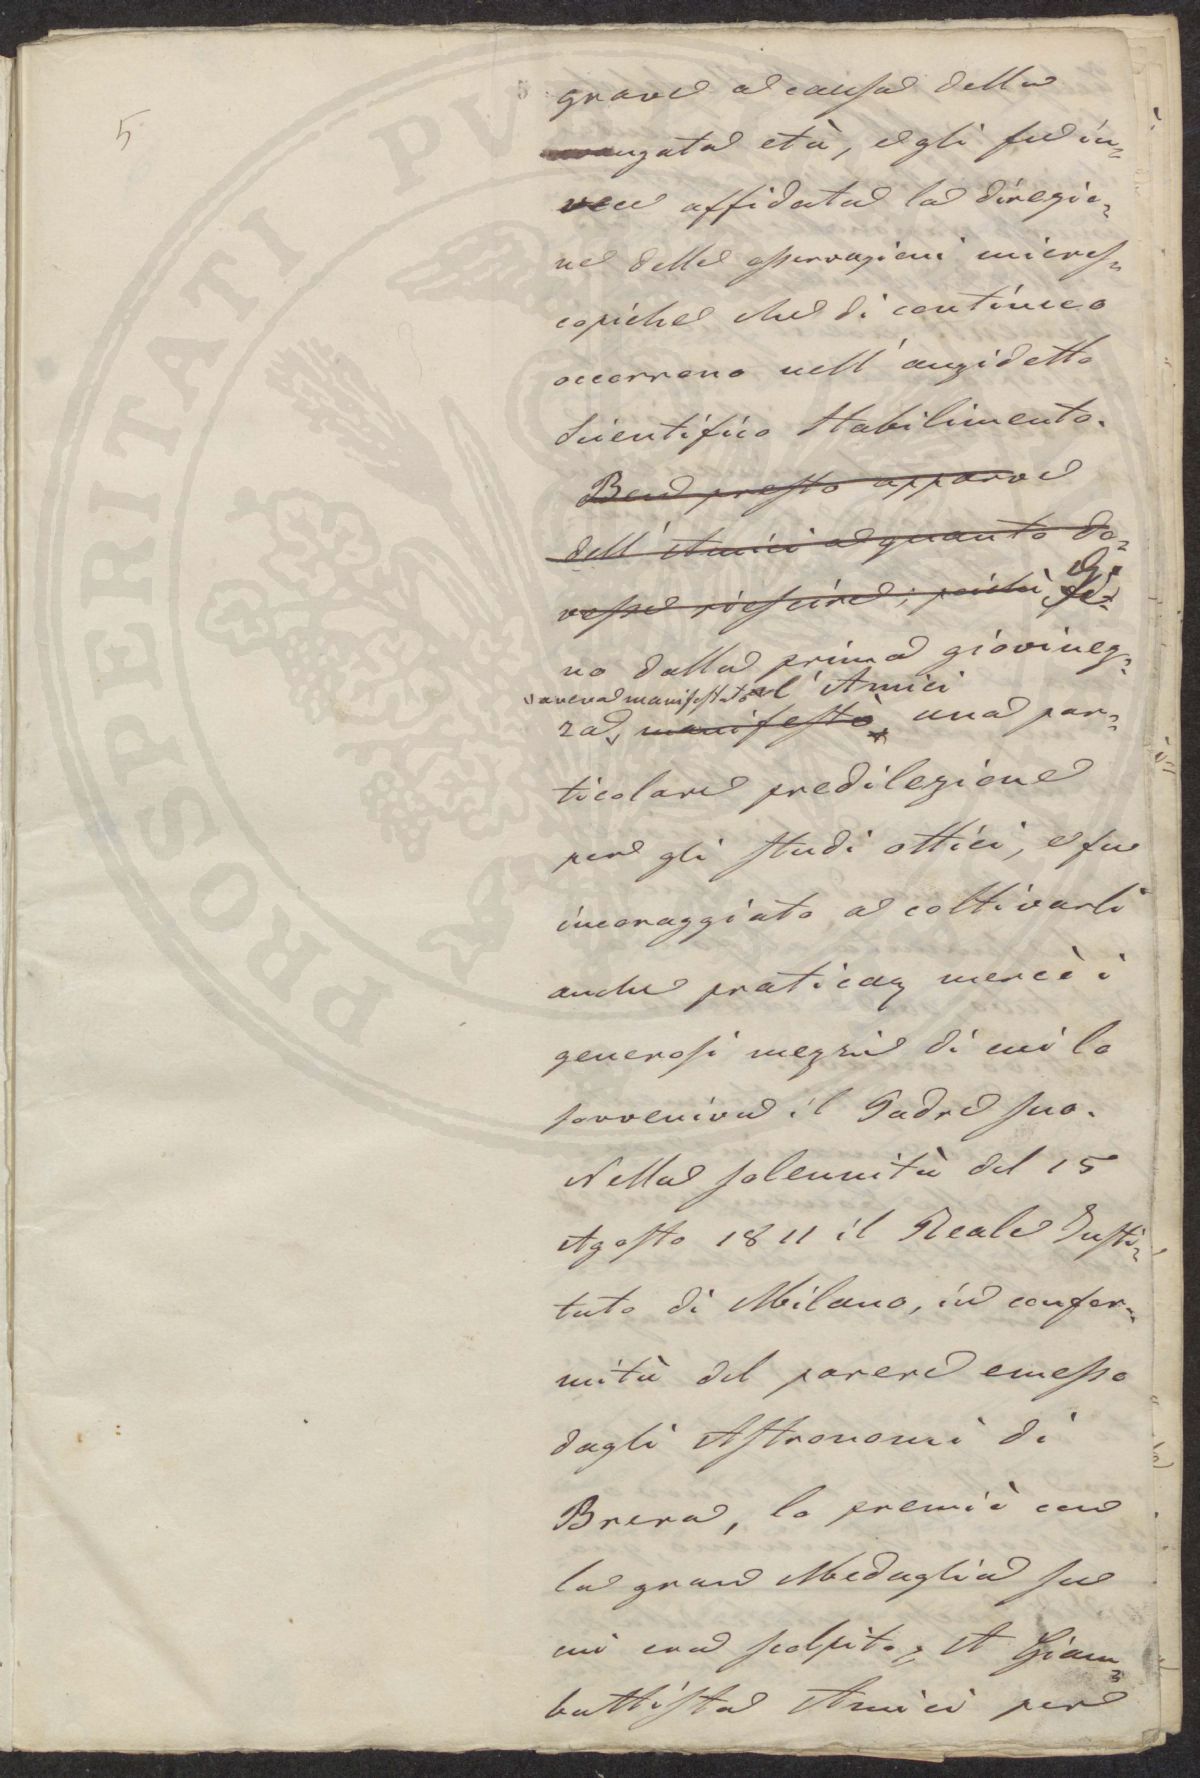 5
grave a causa della
avanzata età, e gli fu in=
vece affidata la direzio=
ne delle osservazioni micros=
copiche che di continuo
occorrono nell' anzidetto
Scientifico Stabilimento.
Ben presto apparve
dell' Amici a quanto do=
vesse riescire; poichè Fi=
no dalla prima giovinez=
aveva manifestato l' Amici
za, manifestò una par=
ticolare predilezione
per gli studi ottici, e fu
incoraggiato a coltivarli
anche pratica mercè i
generosi mezzi di cui lo
sovveniva il Padre suo.
Nella solennità del 15
Agosto 1811 il Reale Insti=
tuto di Milano, in confor=
mità del parere emesso
dagli Astronomi di
Brera, lo premiò con
la gran Medaglia su
cui era scolpito; A Giam=
battista Amici per
PROSPERITATI PV